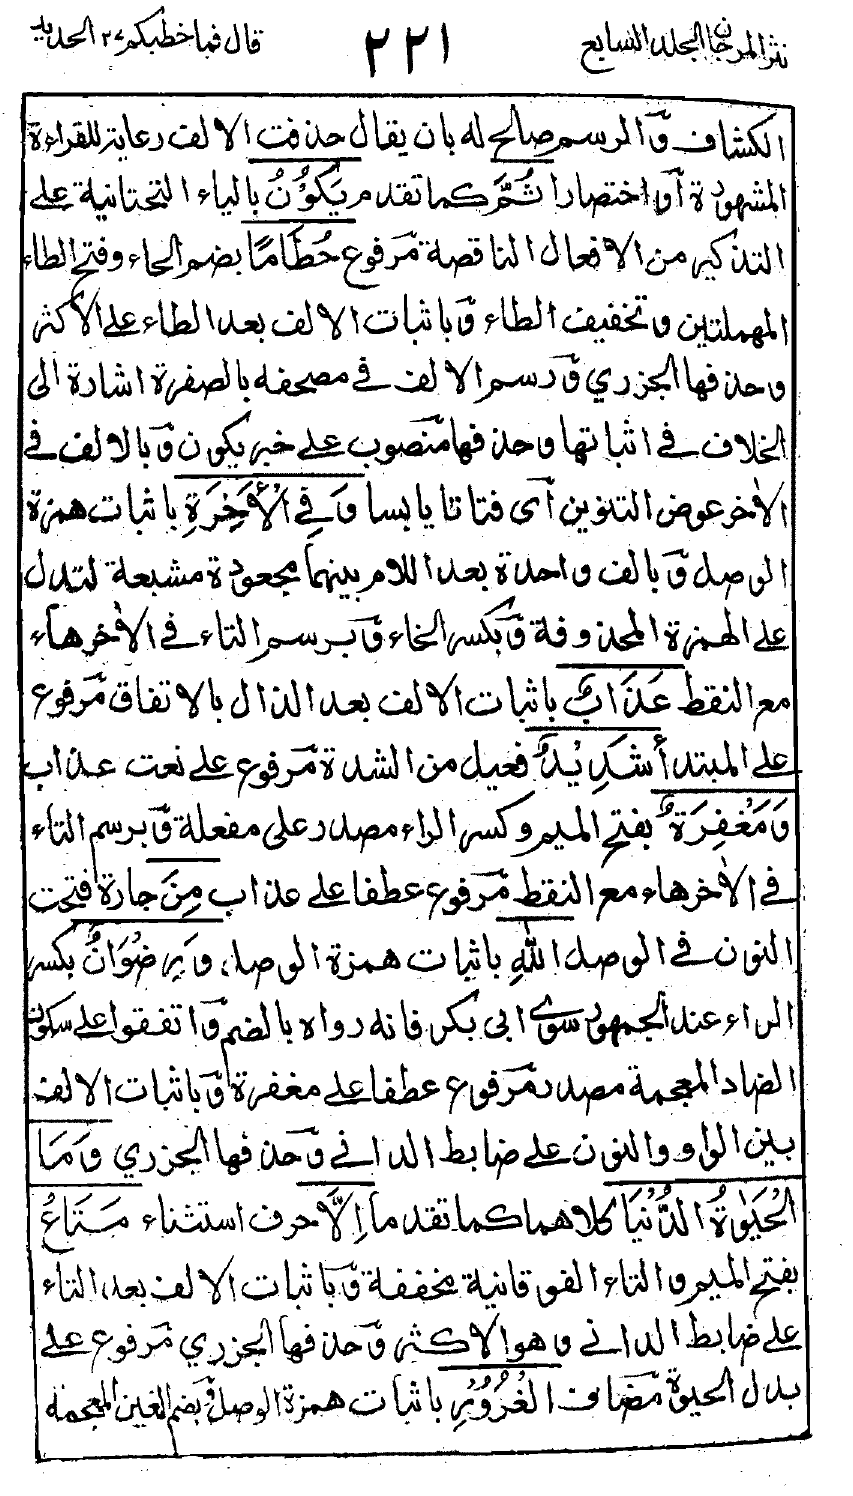 نثر المرجان المجلد السابع
٢٢١
قال فما خطبكم ٢٧ الحديد
الكشاف وٓ المرسم صالح له بان يقال حذفت الالف رعاية للقراءة
المشهودة آو اختصارا ثُمَّ كما تقدم يَكُوْنُ بالياء التحتانية على
التذكير من الافعال الناقصة مٓرفوع حُطَامًا بضم الحاء وفتح الطاء
المهملتين وتخفيف الطاء وٓباثبات الالف بعد الطاء على الاكثر
وحذفها الجزري وٓرسم الالف في مصحفه بالصفرة اشارة الى
الخلاف في اثباتها وحذفها منٓصوب على خبر يكون وٓبالالف في
الاٰخر عوض التنوين آى فتاتا يابسا وَفِي الْاٰخِرَةِ باثبات همزة
الوصل وٓبالف واحدة بعد اللام بينهما مجعودة مشبعة لتدل
على الهمزة المحذوفة وٓبكسر الخاء وٓبرسم التاء في الاٰخر هاء
مع النقط عَذَابٌ باثبات الالف بعد الذال بالاتفاق مٓرفوع
على المبتدأ شَدِيْدٌ فعيل من الشدة مٓرفوع على نعت عذاب
وَمَغْفِرَةٌ بفتح الميم وكسر الراء مصدر على مفعلة وٓبرسم التاء
في الاٰخر هاء مع النقط مٓرفوع عطفا على عذاب مِنَ جارة فتحت
النون في الوصل اللّٰهِ باثبات همزة الوصل وَرِضْوَانٌ بكسر
الراء عند الجمهور سوى ابى بكر فانه رواه بالضم وٓاتفقوا على سكون
الضاد المعجمة مصدر مٓرفوع عطفا على مغفرة وٓباثبات الالف
بين الواو والنون على ضابط الداني وٓحذفها الجزري وَمَا
الْحَيٰوةُ الدُّنْيَا كلاهما كما تقدما اِلَّا حرف استثناء مَتَاعُ
بفتح الميم والتاء الفوقانية مخففة وٓباثبات الالف بعد التاء
على ضابط الداني وهو الاكثر وٓحذفها الجزري مٓرفوع على
بدل الحيوة مٓضاف الْغُرُوْرِ باثبات همزة الوصل وٓبضم الغين المعجمة